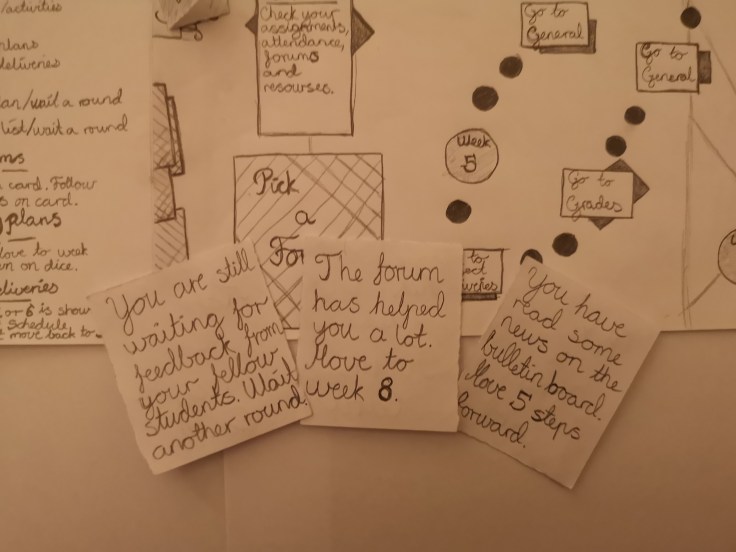 /activities
plans
deliveries
/wait a round
/wait a round
card. Follow
on card.
plans
to week
on dice.
deliveries
or 6 is show
Schedule,
move back to
Check your
assignments,
attendance,
forums
and
resourses.
Pick
a
Go to
General
Go to
General
Week
5
Go to
Grades
to
You are still
waiting for
feedback from
your fellow
students. Wait
another round.
The forum
has helped
you a lot.
Move to
week 8.
You have
read some
news on the
bulletin board.
Move 5 steps
forward.